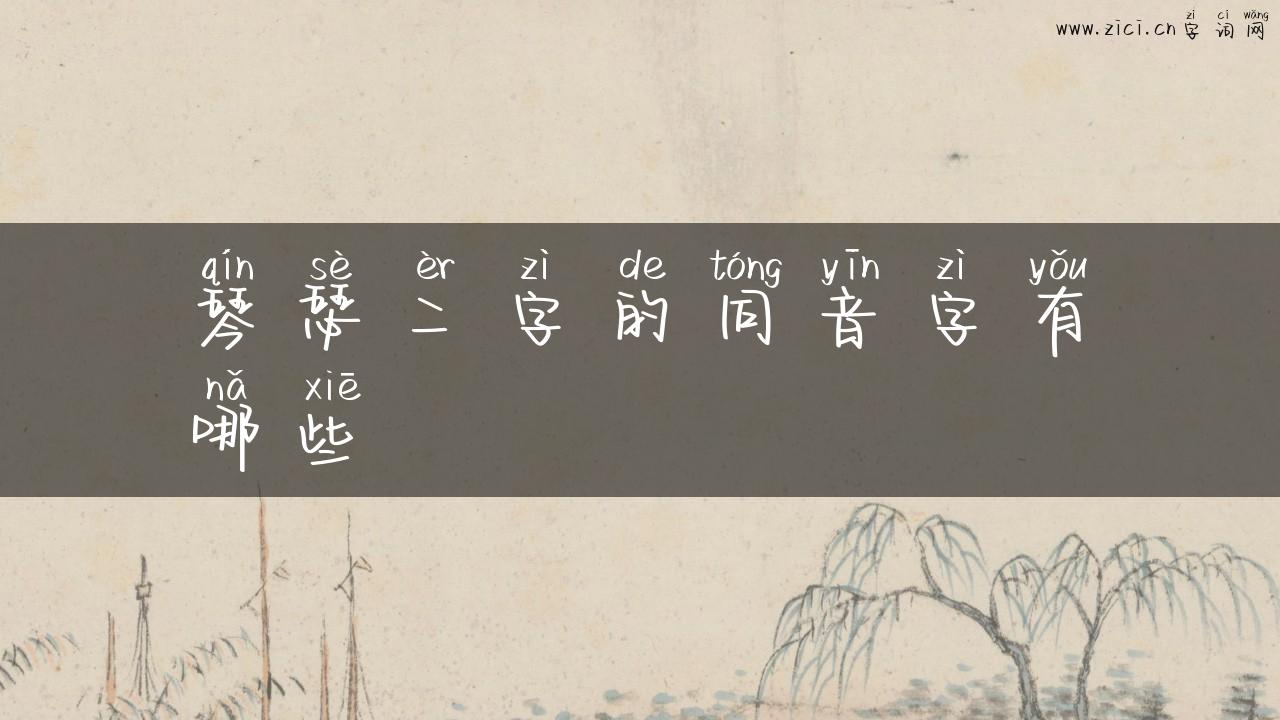 zì cí wǎng
www.zici.cn字词网
qín sè èr zì de tóng yīn zì yǒu
琴瑟二字的同音字有
nǎ xiē
哪些